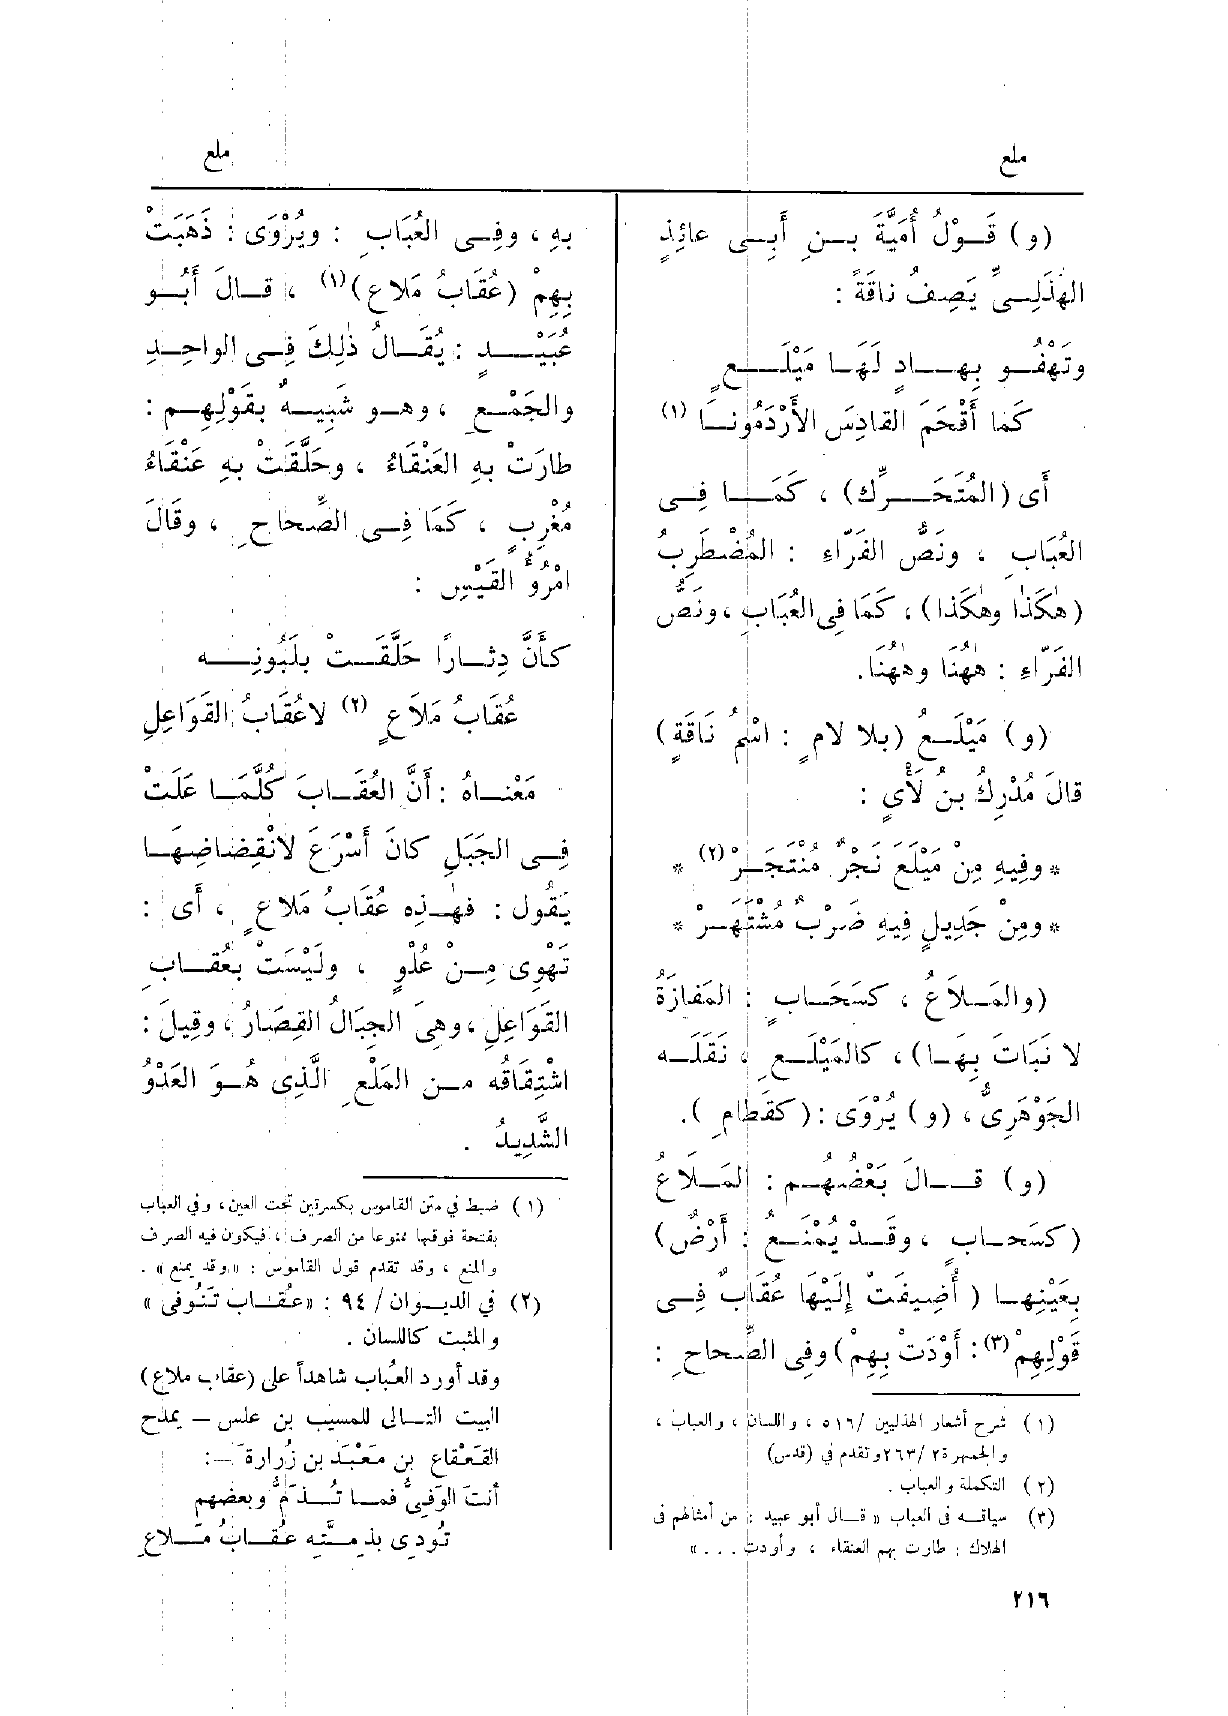 ملع
ملع
(و) قَوْلُ أُمَيَّةَ بنِ أَبِى عائِذٍ
الهُذَلِىِّ يَصِفُ ناقَةً :
وتَهْفُو بِهادٍ لَهَا مَيْلَعٍ
كَمَا أَقْحَمَ القادِسَ الأَرْدَمُونا (١)
أَى (المُتَحَرِّك) ، كَمَا فِى
العُبَابِ ، ونَصُّ الفَرّاءِ : المُضْطَرِبُ
(هٰكَذا وهٰكَذا) ، كَمَا فِى العُبَابِ ، ونَصُّ
الفَرّاءِ : هٰهُنَا وهٰهُنَا.
(و) مَيْلَعُ (بلا لامٍ : اسْمُ نَاقَةٍ)
قالَ مُدْرِكُ بنُ لَأْيٍ :
* وفِيهِ مِنْ مَيْلَعَ نَجْرٌ مُنْتَجَرْ (٢) *
* ومِنْ جَدِيلٍ فِيهِ ضَرْبٌ مُشْتَهَرْ *
(والمَلاَعُ ، كسَحَابٍ : المَفازَةُ
لا نَبَاتَ بِهَا) ، كالمَيْلَعِ ، نَقَلَه
الجَوْهَرِىُّ ، (و) يُرْوَى : (كقَطامِ ).
(و) قالَ بَعْضُهُم : المَلَاعُ
(كسَحابٍ ، وقَدْ يُمْنَعُ : أَرْضٌ)
بِعَيْنِها ( أُضِيفَتْ إِلَيْهَا عُقَابٌ فِى
قَوْلِهِمْ (٣) : أَوْدَتْ بِهِمْ) وفِى الصِّحاحِ :
(١) شرح أشعار الهذليين /٥١٦ ، واللسان ، والعباب ،
والجمهرة ٢/ ٢٦٣ وتقدم في (قدس)
(٢) التكملة والعباب .
(٣) سياقه فى العباب « قال أبو عبيد : من أمثالهم فى
الهلاك : طارت بهم العنقاء ، وأودت . . . »
بهِ ، وفِى العُبَابِ : ويُرْوَى : ذَهَبَتْ
بِهِمْ (عُقَابُ مَلاعِ) (١) ، قالَ أَبُو
عُبَيْدٍ : يُقَالُ ذٰلِكَ فِى الواحِدِ
والجَمْعِ ، وهو شَبِيهٌ بقَوْلِهِم :
طارَتْ بهِ العَنْقَاءُ ، وحَلَّقَتْ بهِ عَنْقَاءُ
مُغْرِبٍ ، كَمَا فِى الصِّحاحِ ، وقالَ
امْرُؤُ القَيْسِ :
كأَنَّ دِثارًا حَلَّقَتْ بلَبُونِه
عُقَابُ مَلاَعٍ (٢) لا عُقَابُ القَوَاعِلِ
مَعْناهُ : أَنَّ العُقَابَ كُلَّمَا عَلَتْ
فِى الجَبَلِ كانَ أَسْرَعَ لانْقِضاضِهَا
يَقُول : فهٰذِه عُقَابُ مَلاعٍ ، أَى :
تَهْوِى مِنْ عُلْوٍ ، ولَيْسَتْ بعُقَابِ
القَوَاعِلِ ، وهِىَ الجِبَالُ القِصَارُ ، وقِيلَ :
اشْتِقاقُه من المَلْعِ الَّذِى هُوَ العَدْوُ
الشَّدِيدُ .
(١) ضبط في متن القاموس بكسرتين تحت العين ، وفي العباب
بفتحة فوقها ممنوعا من الصرف ، فيكون فيه الصرف
والمنع ، وقد تقدم قول القاموس : «وقد يمنع» .
(٢) في الديوان / ٩٤ : «عُقاب تَنُوفى»
والمثبت كاللسان .
وقد أورد العُباب شاهداً على (عقاب ملاع)
البيت التالى للمسيب بن علس – يمدح
القَعْقاع بن مَعْبَد بن زُرارةَ – :
أنت الوَفِىُّ فما تُذَمُّ وبعضهم
تُودِى بذِمَّتِه عُقابُ مَلاعِ
٢١٦